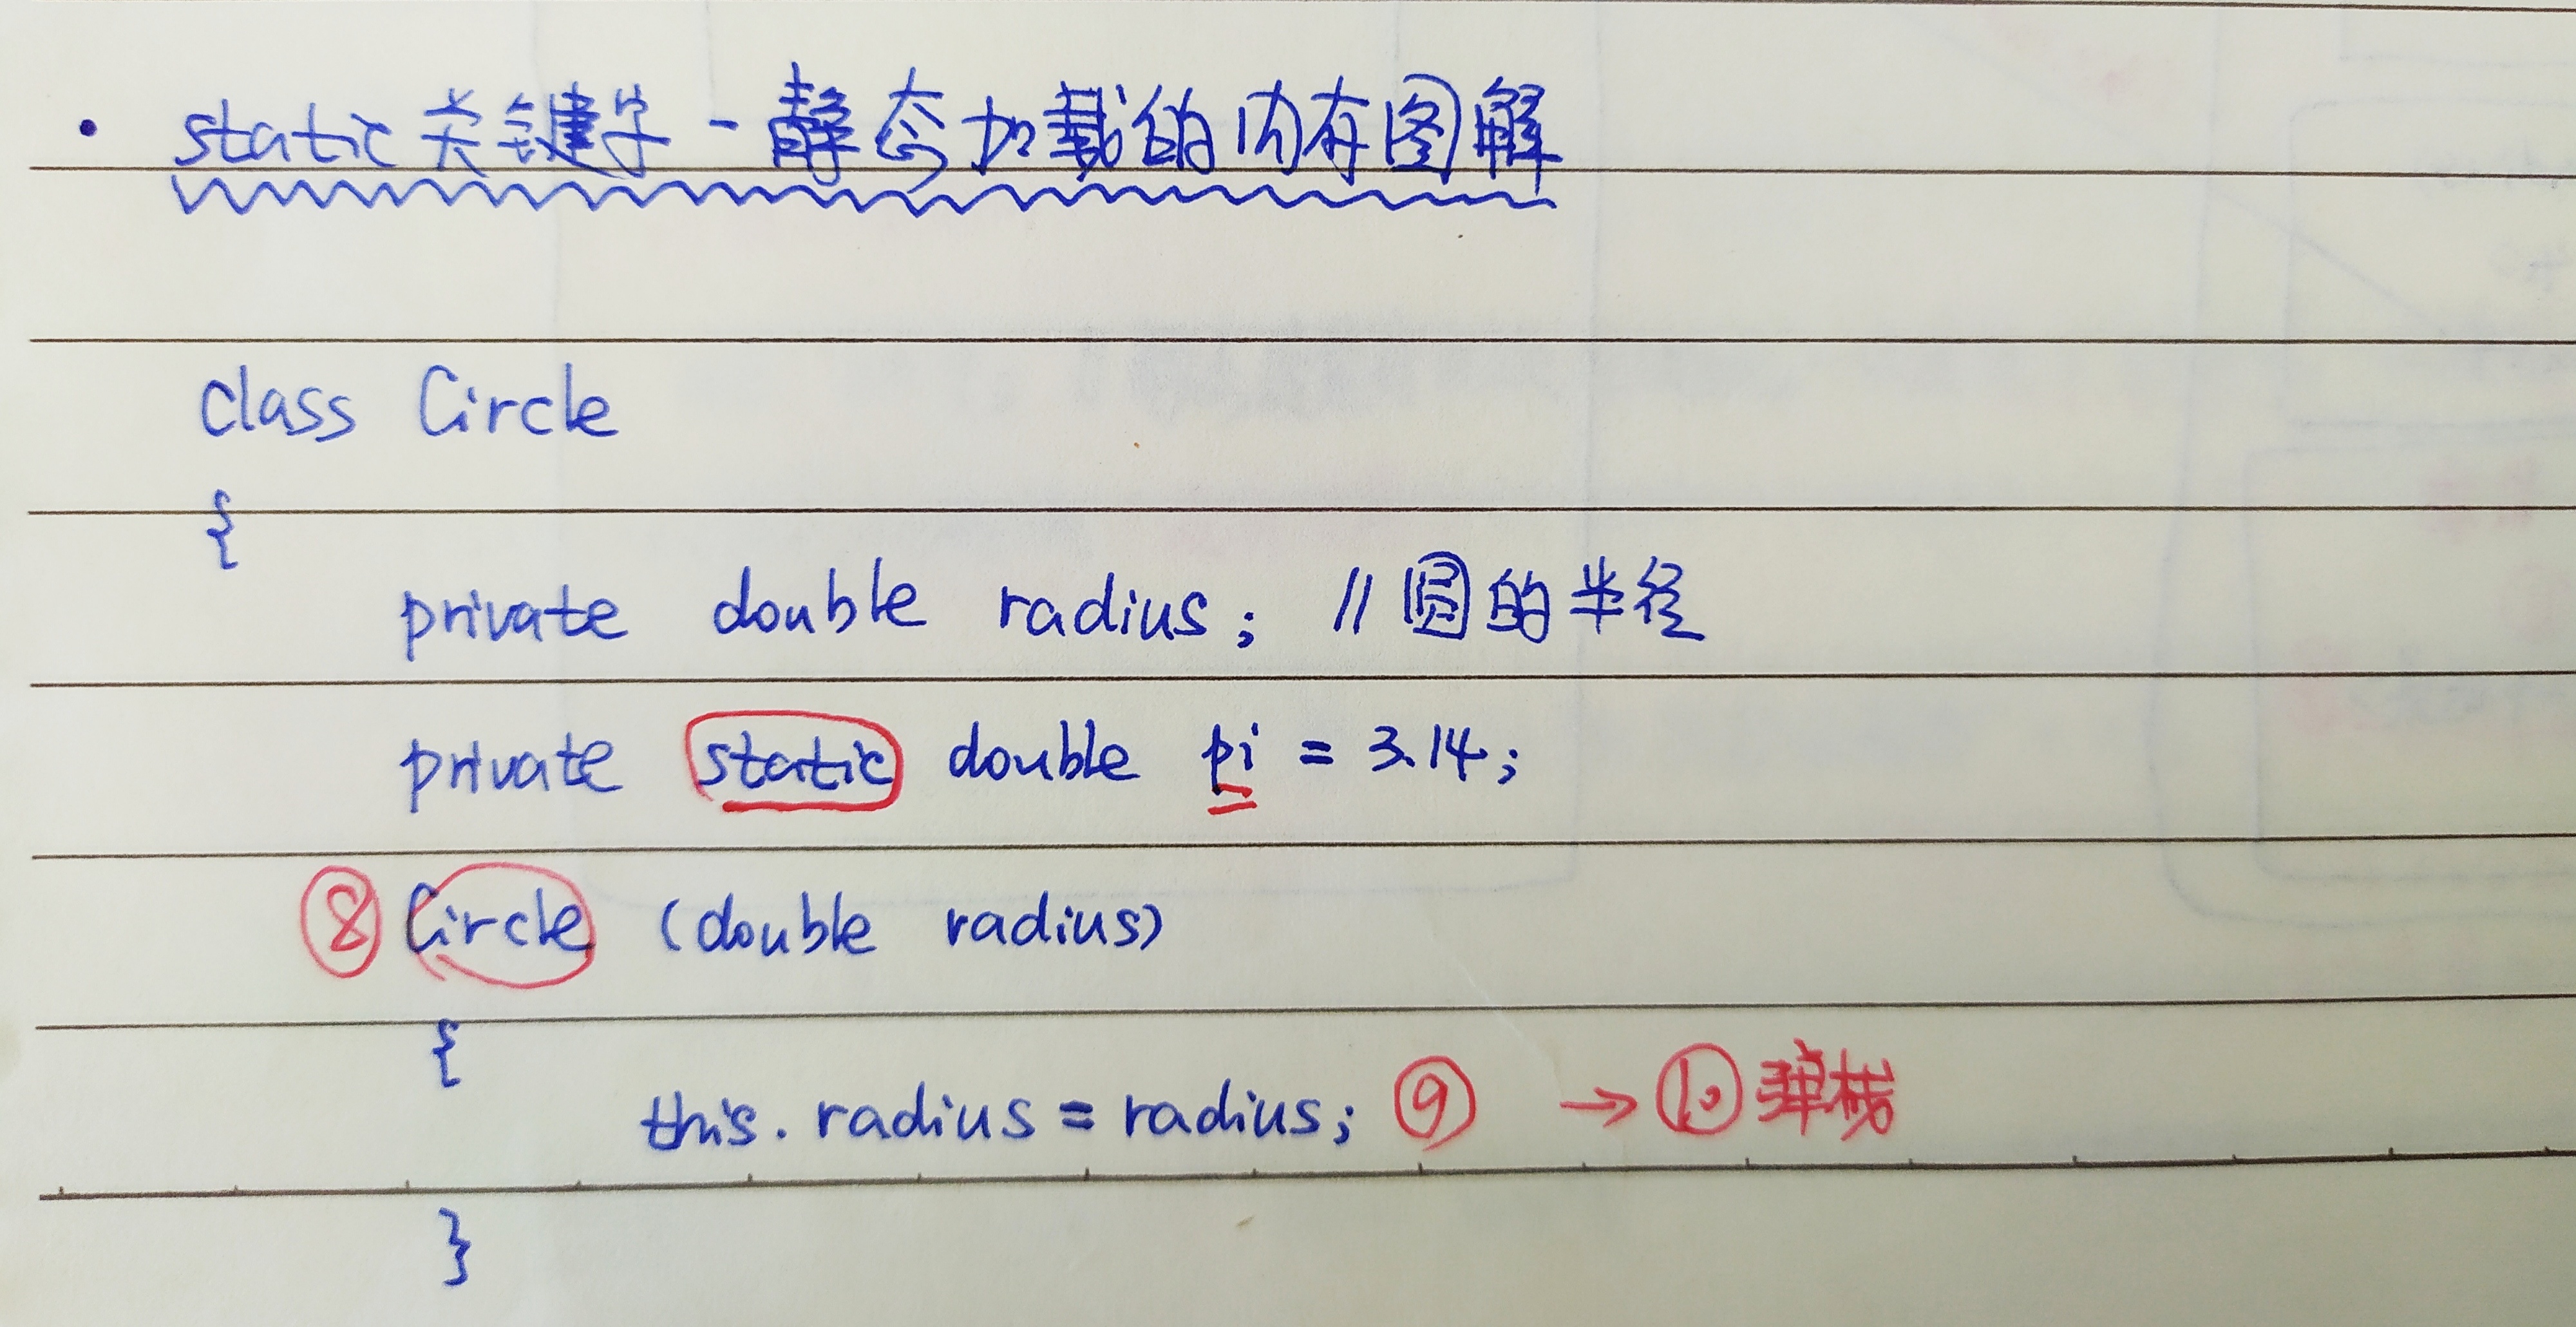 • static关键字-静态加载的内存图解
class Circle
{
private double radius; //圆的半径
private static double pi = 3.14;
⑧ Circle (double radius)
{
this.radius = radius; ⑨ → ⑩ 弹栈
}